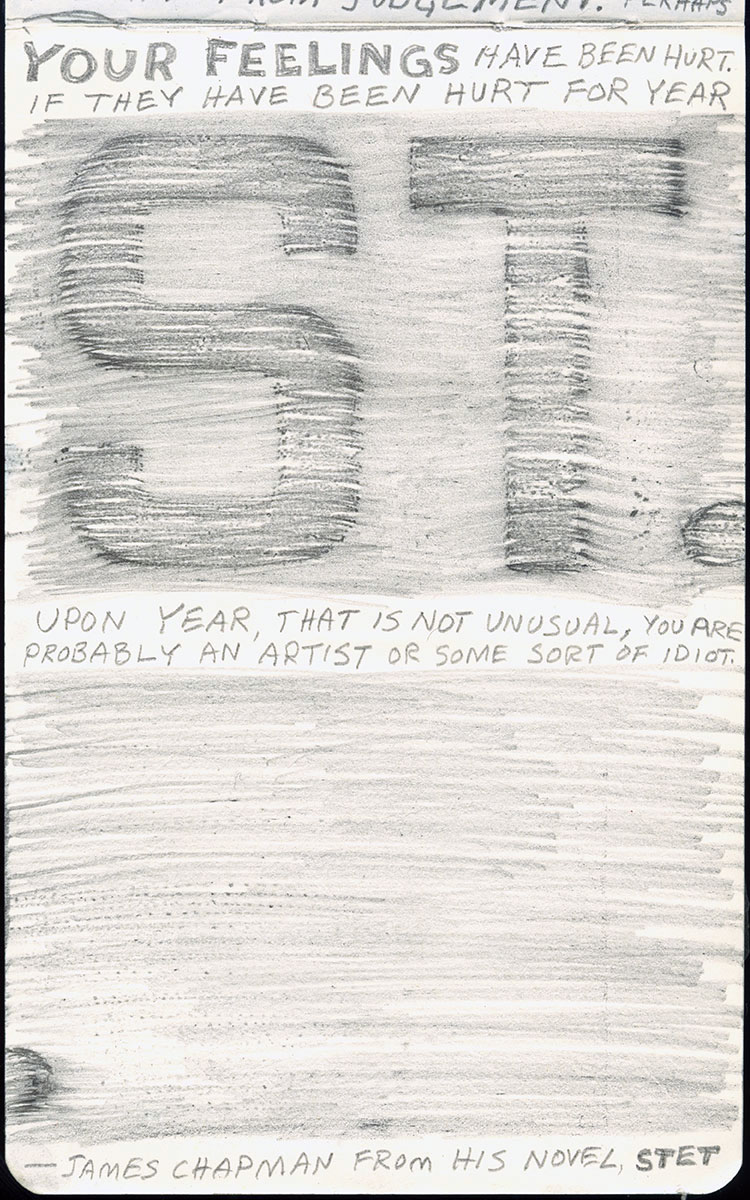 FROM JUDGEMENT. PERHAPS
YOUR FEELINGS HAVE BEEN HURT.
IF THEY HAVE BEEN HURT FOR YEAR
ST.
UPON YEAR, THAT IS NOT UNUSUAL, YOU ARE
PROBABLY AN ARTIST OR SOME SORT OF IDIOT.
— JAMES CHAPMAN FROM HIS NOVEL, STET